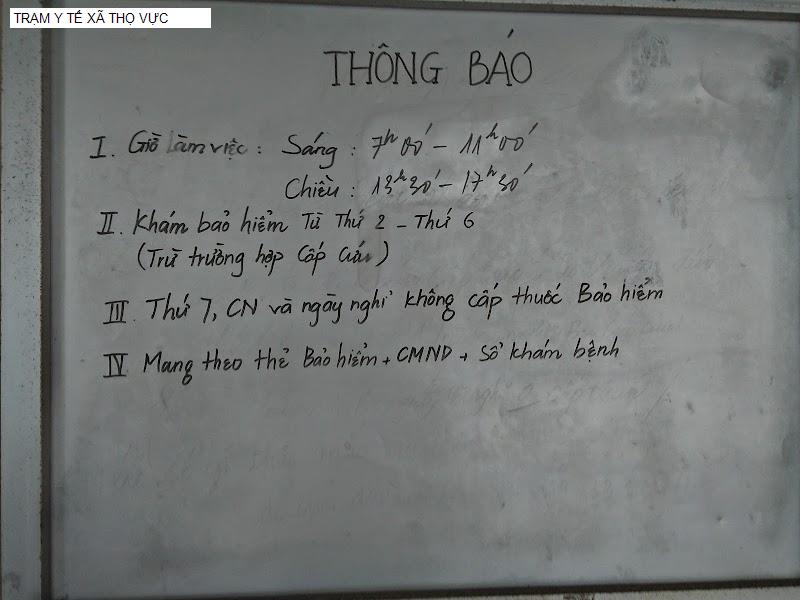 TRẠM Y TẾ XÃ THỌ VỰC
THÔNG BÁO
I. Giờ làm việc : Sáng : 7h00' - 11h00'
Chiều : 13h30' - 17h30'
II. Khám bảo hiểm Từ Thứ 2 - Thứ 6
(Trừ trường hợp Cấp Cứu)
III. Thứ 7, CN và ngày nghỉ không cấp thuốc Bảo hiểm
IV Mang theo thẻ Bảo hiểm + CMND + Sổ khám bệnh